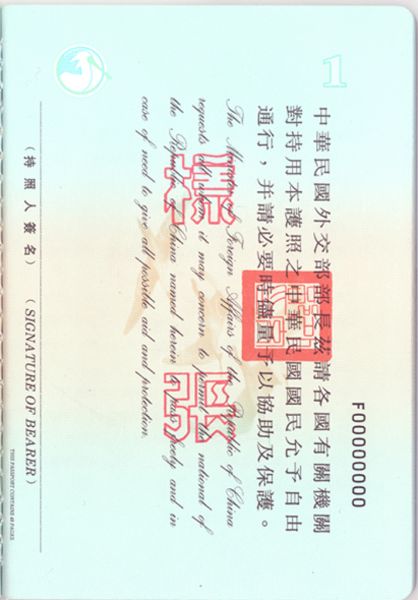 F00000000
1
中華民國外交部部長茲請各國有關機關
對持用本護照之中華民國國民允予自由
通行，并請必要時儘量予以協助及保護。
The Minister of Foreign Affairs of the Republic of China
requests all whom it may concern to permit the national of
the Republic of China named herein to pass freely and in
case of need to give all possible aid and protection.
(持照人簽名) (SIGNATURE OF BEARER)
THIS PASSPORT CONTAINS 48 PAGES